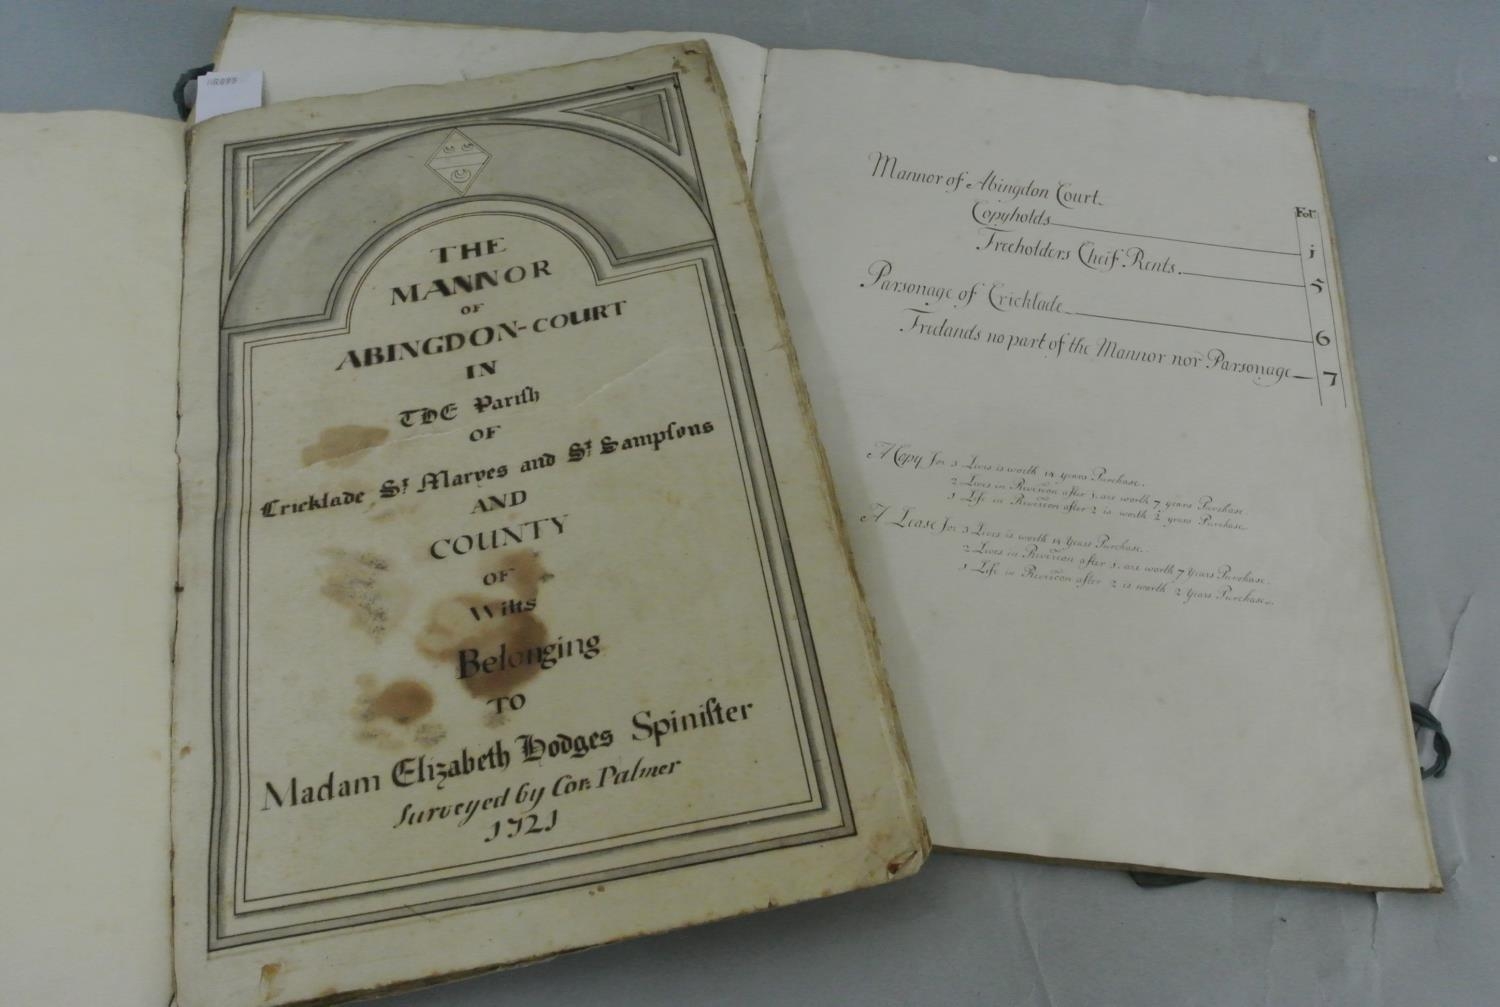 THE
MANNOR
OF
ABINGDON-COURT
IN
THE Pariſh
OF
Cricklade St Maryes and St Sampſons
AND
COUNTY
OF
Wilts
Belonging
TO
Madam Elizabeth Hodges Spiniſter
Surveyed by Cor: Palmer
1721
Fol.
Mannor of Abingdon Court.
Copyholds 1
Freeholders Cheif-Rents. 5
Parsonage of Cricklade 6
Freelands no part of the Mannor nor Parsonage 7
A Copy for 3 Lives is worth 14 years Purchase.
2 Lives in Revercon after 1. are worth 7 years Purchase
1 Life in Revercon after 2 is worth 2 years Purchase
A Lease for 3 Lives is worth 14 Years Purchase.
2 Lives in Revercon after 1. are worth 7 Years Purchase.
1 Life in Revercon after 2 is worth 2 Years Purchase.